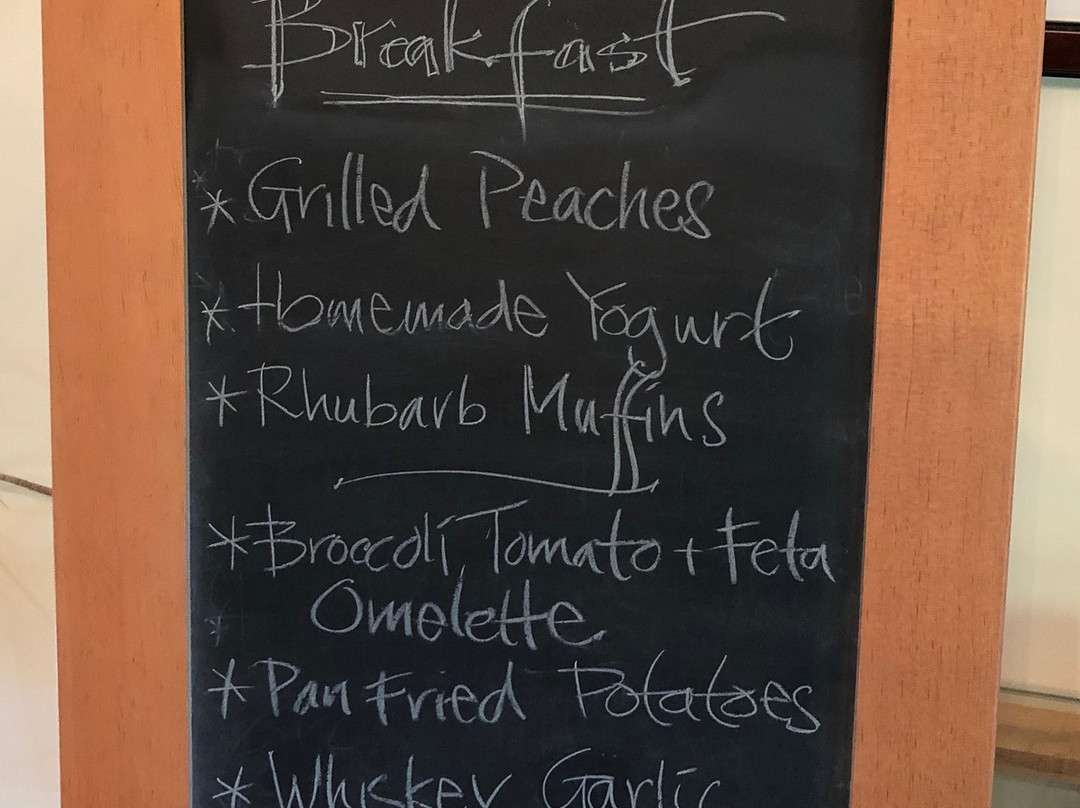 Breakfast
* Grilled Peaches
* Homemade Yogurt
* Rhubarb Muffins
* Broccoli, Tomato + Feta
Omelette
* Pan Fried Potatoes
* Whiskey Garlic